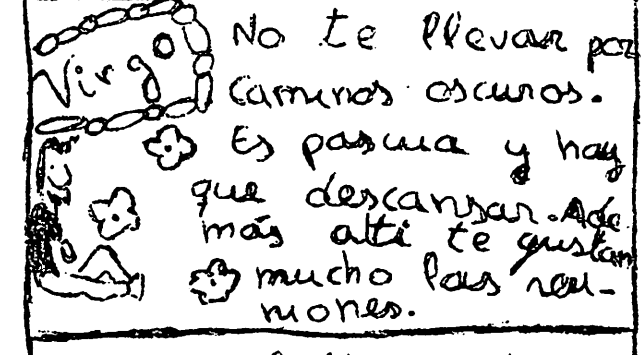 Virgo
No te llevan por
caminos oscuros.
Es pascua y hay
que descansar. Ade
más atti te gustan
mucho las reu-
niones.